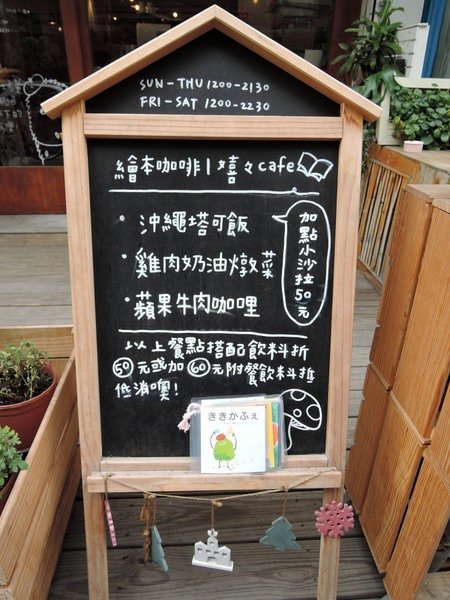 SUN-THU 1200-2130
FRI-SAT 1200-2230
繪本咖啡|嘻々cafe
・沖繩塔可飯
・雞肉奶油燉菜
・蘋果牛肉咖哩
加點小沙拉50元
以上餐點搭配飲料折
50元或加60元附餐飲料抵
低消噢!
ききかふぇ